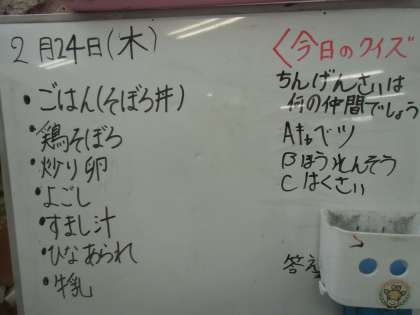 2月24日(木)
・ごはん(そぼろ丼)
・鶏そぼろ
・炒り卵
・よごし
・すまし汁
・ひなあられ
・牛乳
<今日のクイズ
ちんげんさいは
何の仲間でしょう
Aキャベツ
Bほうれんそう
Cはくさい
答え